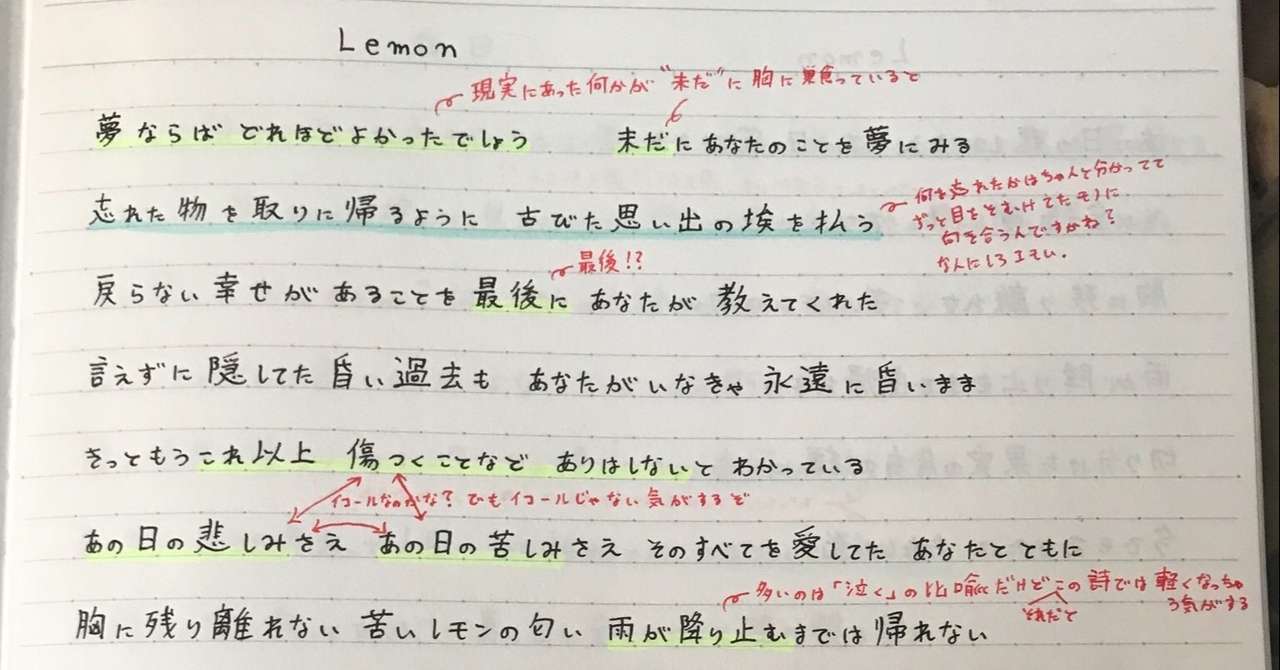 Lemon
現実にあった何かが“未だ”に胸に巣食っていると
夢ならばどれほどよかったでしょう 未だにあなたのことを夢にみる
忘れた物を取りに帰るように 古びた思い出の埃を払う
何を忘れたかはちゃんと分かってて
ずっと目をそむけてたモノに
向き合うんですかね?
なんにしろエモい.
最後!?
戻らない幸せがあることを最後にあなたが教えてくれた
言えずに隠してた昏い過去も あなたがいなきゃ永遠に昏いまま
きっともうこれ以上 傷つくことなど ありはしないとわかっている
イコールなのかな? でもイコールじゃない気がするぞ
あの日の悲しみさえ あの日の苦しみさえ そのすべてを愛してた あなたとともに
多いのは「泣く」の比喩だけどこの詩では軽くなっちゃ
う気がする
それだと
胸に残り離れない 苦いレモンの匂い 雨が降り止むまでは帰れない